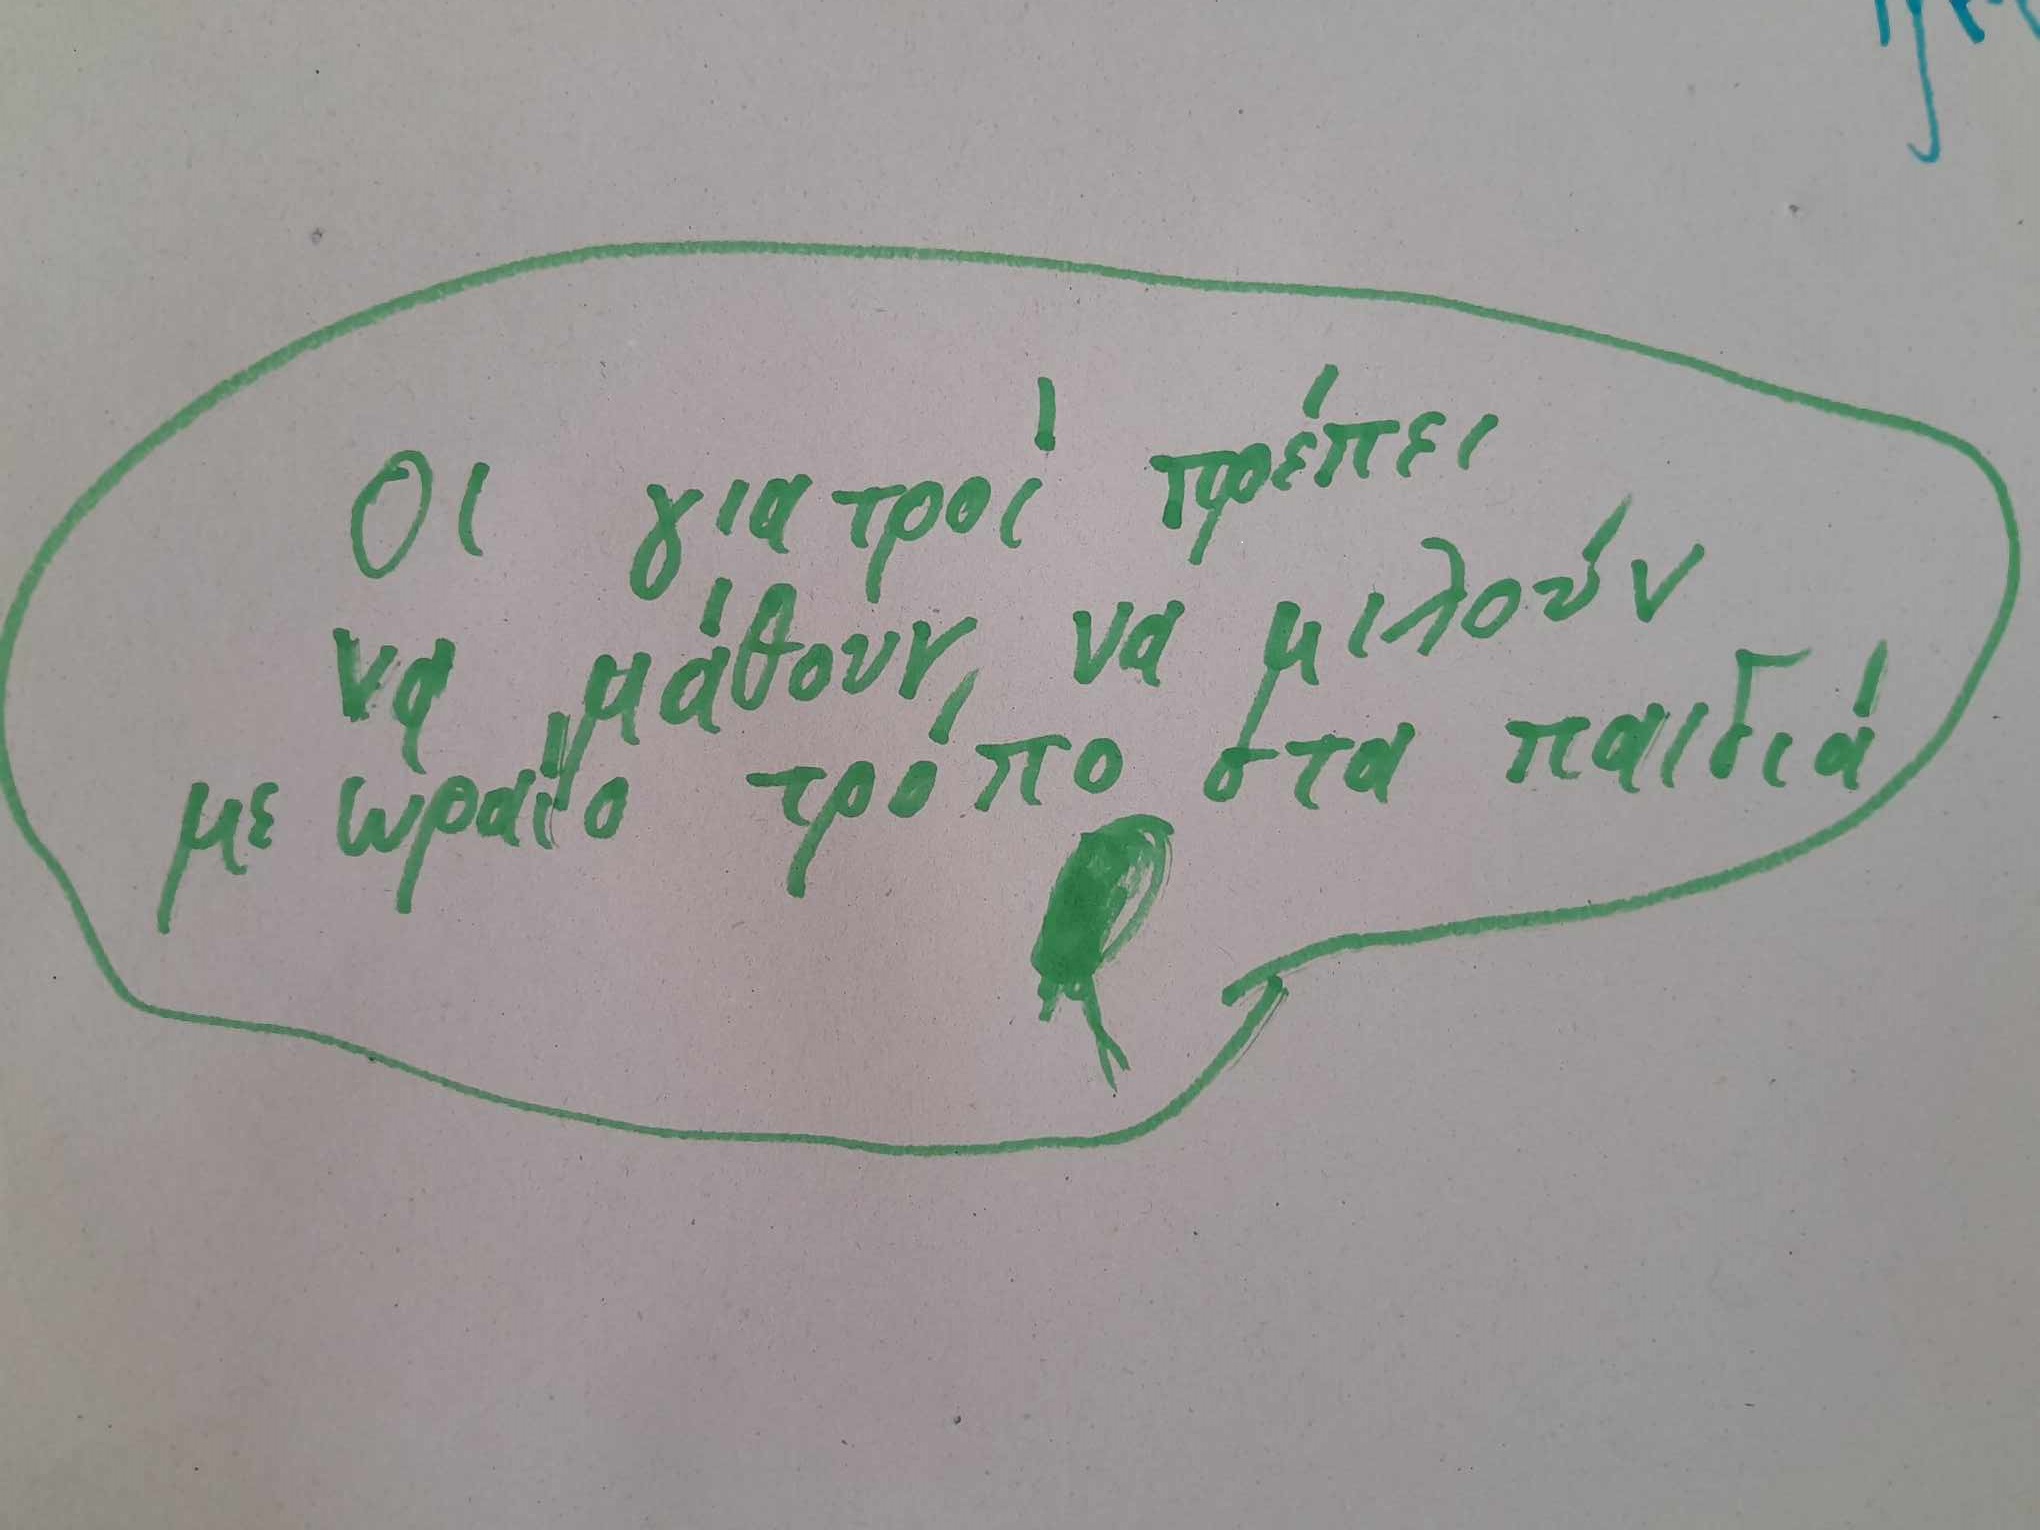 Οι γιατροί πρέπει
να μάθουν, να μιλούν
με ωραίο τρόπο στα παιδιά